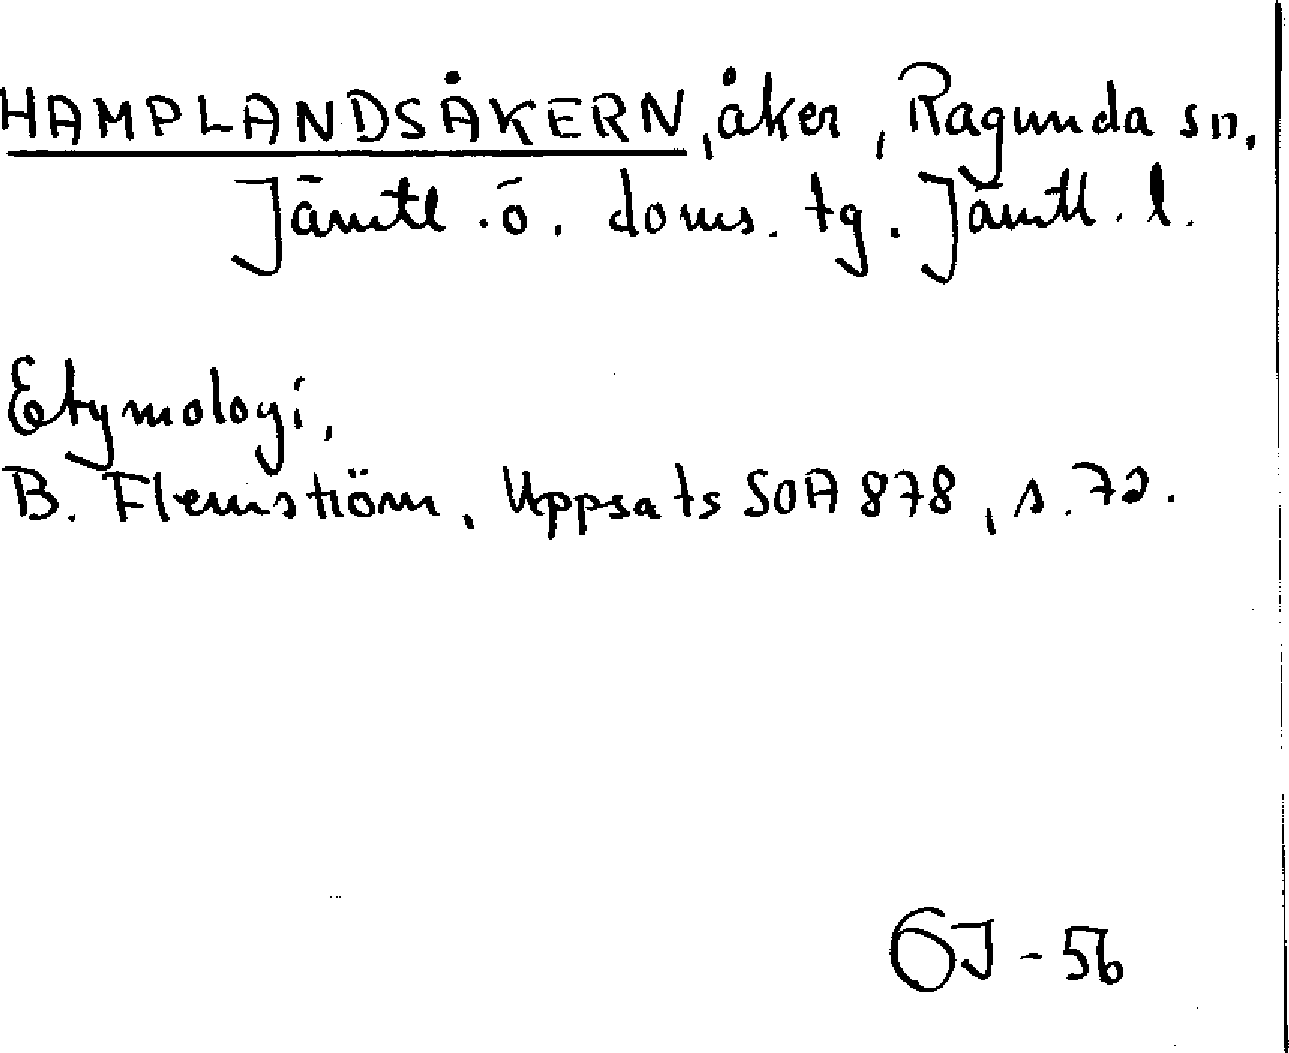 HAMPLANDSÅKERN, åker, Ragunda sn.
Jämtl. ö. doms. tg. Jämtl. l.
Etymologi,
B. Flemström, Uppsats SOA 878, s. 72.
GJ - 56